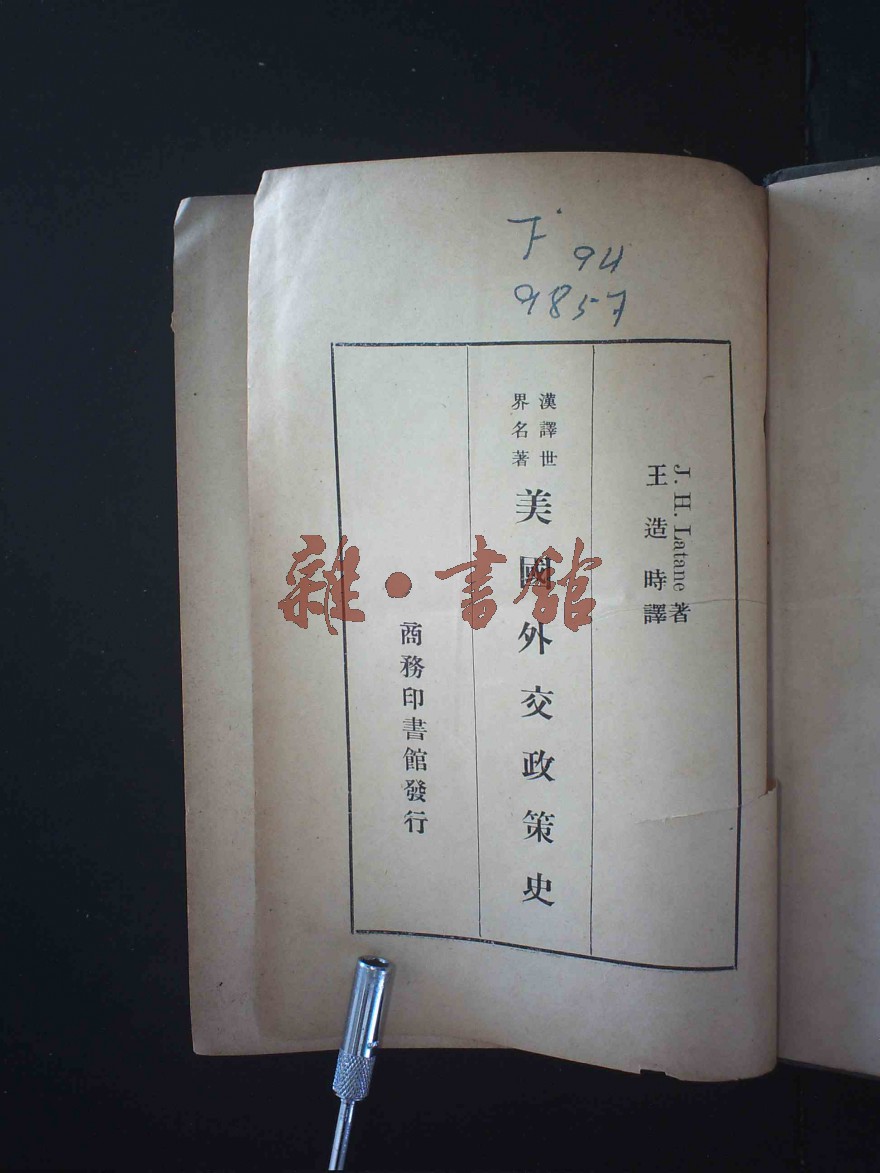 F 94
9857
J. H. Latane 著
王造時譯
漢譯世
界名著
美國外交政策史
商務印書館發行
雜·書館